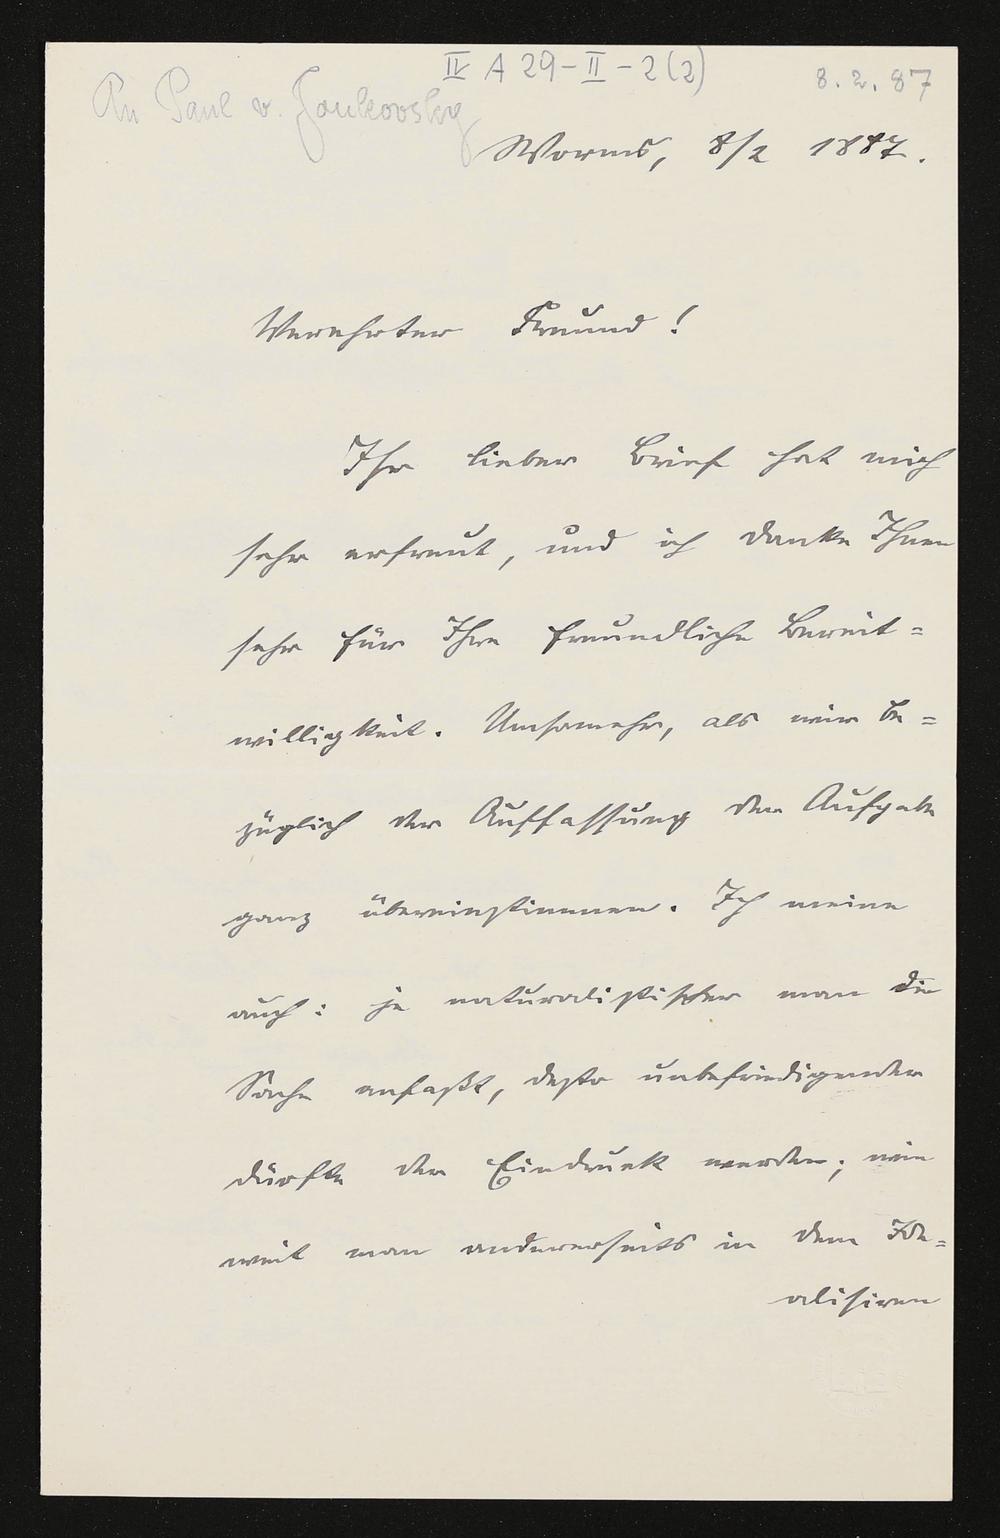 IV A 29-II-2(2)
8. 2. 87
An Paul v. Joukovsky
Worms, 8/2 1887.
Verehrter Freund!
Ihr lieber Brief hat mich
sehr erfreut, und ich danke Ihnen
sehr für Ihre freundliche Bereit=
willigkeit. Umsomehr, als wir be=
züglich der Auffassung der Aufgabe
ganz übereinstimmen. Ich meine
auch: je naturalistischer man die
Sache anfaßt, desto unbefriedigender
dürfte der Eindruck werden; wie
weit man andererseits in dem Ide=
alisiren